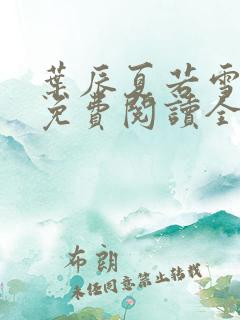 葉辰夏若雪
免費閱讀全
布朗
未经同意禁止转载